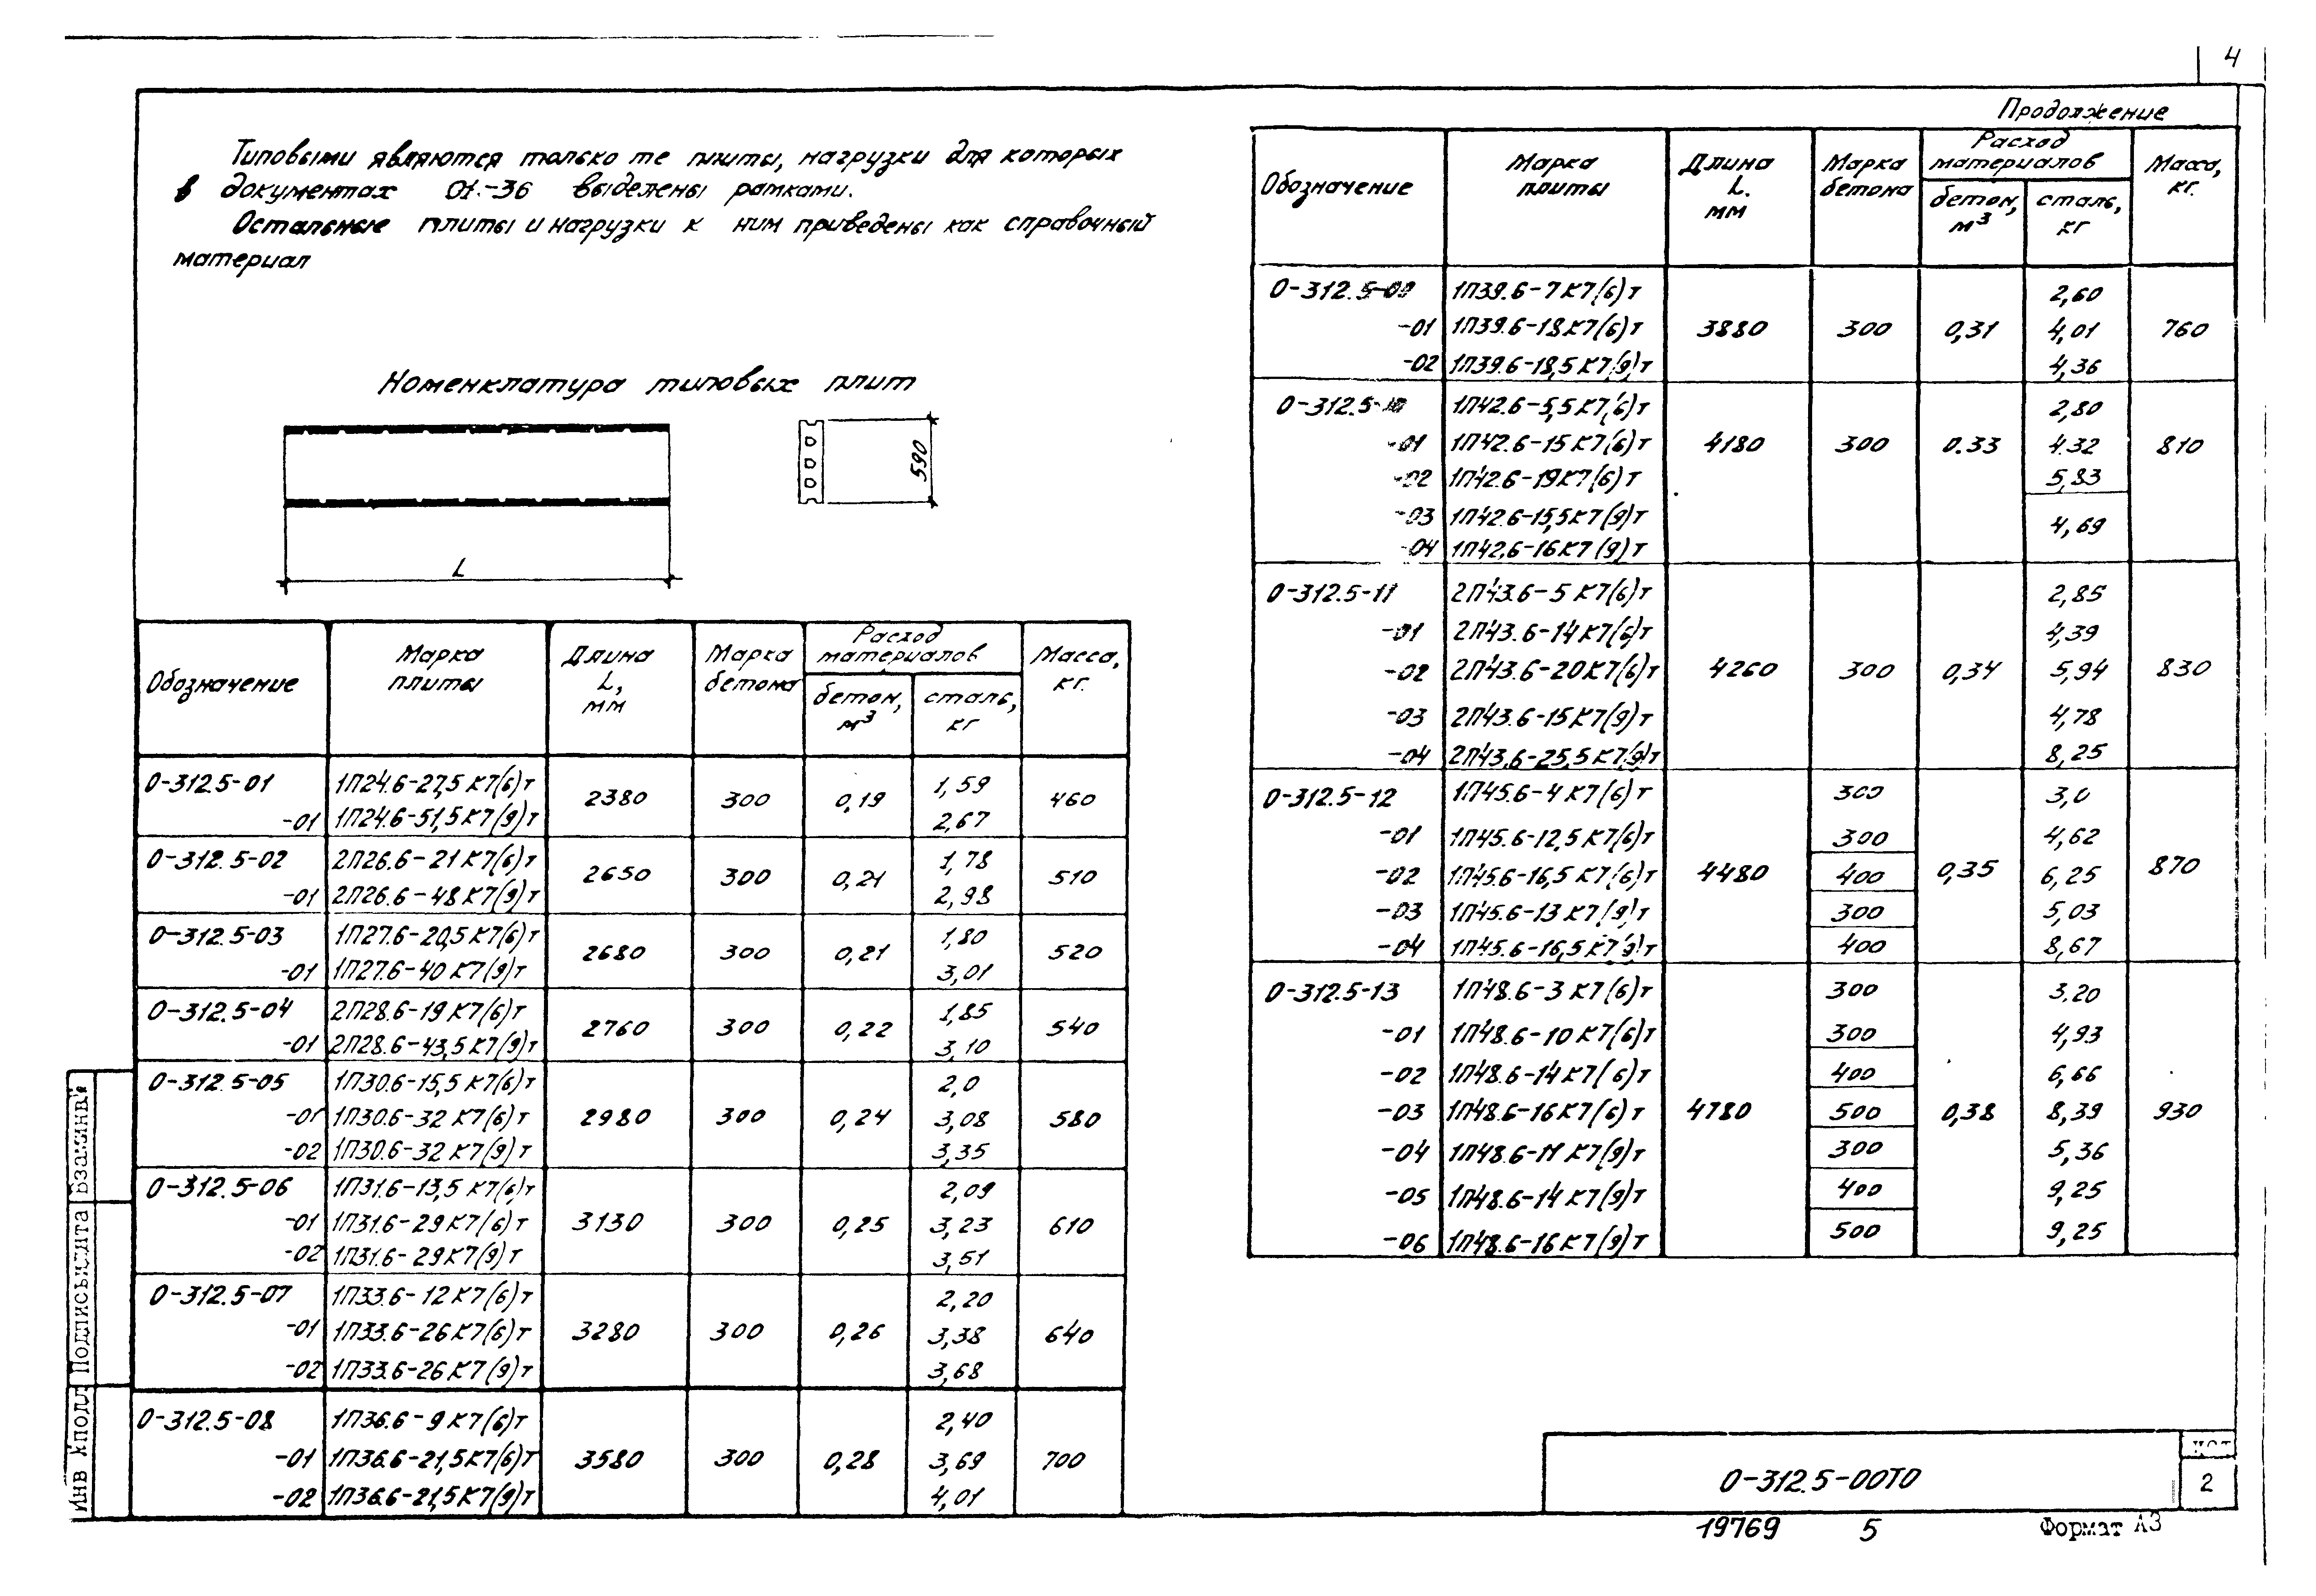 4
Типовыми являются только те плиты, нагрузки для которых
в документах 01.-36 выделены рамками.
Остальные плиты и нагрузки к ним приведены как справочный
материал
Номенклатура типовых плит
590
L
Обозначение Марка плиты Длина L, мм Марка бетона Расход материалов бетон, м³ сталь, кг Масса, кг.
0-312.5-01 1П24.6-27,5К7(6)т 2380 300 0,19 1,59 460
-01 1П24.6-51,5К7(9)т 2,67
0-312.5-02 2П26.6-21К7(6)т 2650 300 0,21 1,78 510
-01 2П26.6-48К7(9)т 2,98
0-312.5-03 1П27.6-20,5К7(6)т 2680 300 0,21 1,80 520
-01 1П27.6-40К7(9)т 3,01
0-312.5-04 2П28.6-19К7(6)т 2760 300 0,22 1,85 540
-01 2П28.6-43,5К7(9)т 3,10
0-312.5-05 1П30.6-15,5К7(6)т 2,0
-01 1П30.6-32К7(6)т 2980 300 0,24 3,08 580
-02 1П30.6-32К7(9)т 3,35
0-312.5-06 1П31.6-13,5К7(6)т 2,09
-01 1П31.6-29К7(6)т 3130 300 0,25 3,23 610
-02 1П31.6-29К7(9)т 3,51
0-312.5-07 1П33.6-12К7(6)т 2,20
-01 1П33.6-26К7(6)т 3280 300 0,26 3,38 640
-02 1П33.6-26К7(9)т 3,68
0-312.5-08 1П36.6-9К7(6)т 2,40
-01 1П36.6-21,5К7(6)т 3580 300 0,28 3,69 700
-02 1П36.6-21,5К7(9)т 4,01
Продолжение
Обозначение Марка плиты Длина L. мм Марка бетона Расход материалов бетон, м³ сталь, кг Масса, кг.
0-312.5-09 1П39.6-7К7(6)т 2,60
-01 1П39.6-18К7(6)т 3880 300 0,31 4,01 760
-02 1П39.6-18,5К7(9)т 4,36
0-312.5-10 1П42.6-5,5К7(6)т 2,80
-01 1П42.6-15К7(6)т 4180 300 0.33 4.32 810
-02 1П42.6-19К7(6)т 5,83
-03 1П42.6-15,5К7(9)т 4,69
-04 1П42.6-16К7(9)т
0-312.5-11 2П43.6-5К7(6)т 2,85
-01 2П43.6-14К7(6)т 4,39
-02 2П43.6-20К7(6)т 4260 300 0,34 5,94 830
-03 2П43.6-15К7(9)т 4,78
-04 2П43.6-25,5К7(9)т 8,25
0-312.5-12 1П45.6-4К7(6)т 300 3,0
-01 1П45.6-12,5К7(6)т 300 4,62
-02 1П45.6-16,5К7(6)т 4480 400 0,35 6,25 870
-03 1П45.6-13К7(9)т 300 5,03
-04 1П45.6-16,5К7(9)т 400 8,67
0-312.5-13 1П48.6-3К7(6)т 300 3,20
-01 1П48.6-10К7(6)т 300 4,93
-02 1П48.6-14К7(6)т 400 6,66
-03 1П48.6-16К7(6)т 4780 500 0,38 8,39 930
-04 1П48.6-11К7(9)т 300 5,36
-05 1П48.6-14К7(9)т 400 9,25
-06 1П48.6-16К7(9)т 500 9,25
Инв №подл. Подпись и дата Взам.инв.№
0-312.5-00ТО
2
19769 5 Формат А3